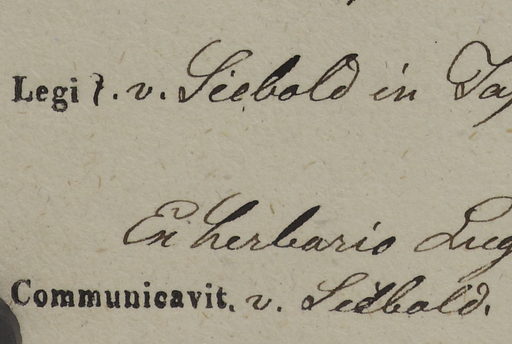 Legit. v. Siebold in Jap
Ex herbario Lug
Communicavit. v. Siebold.